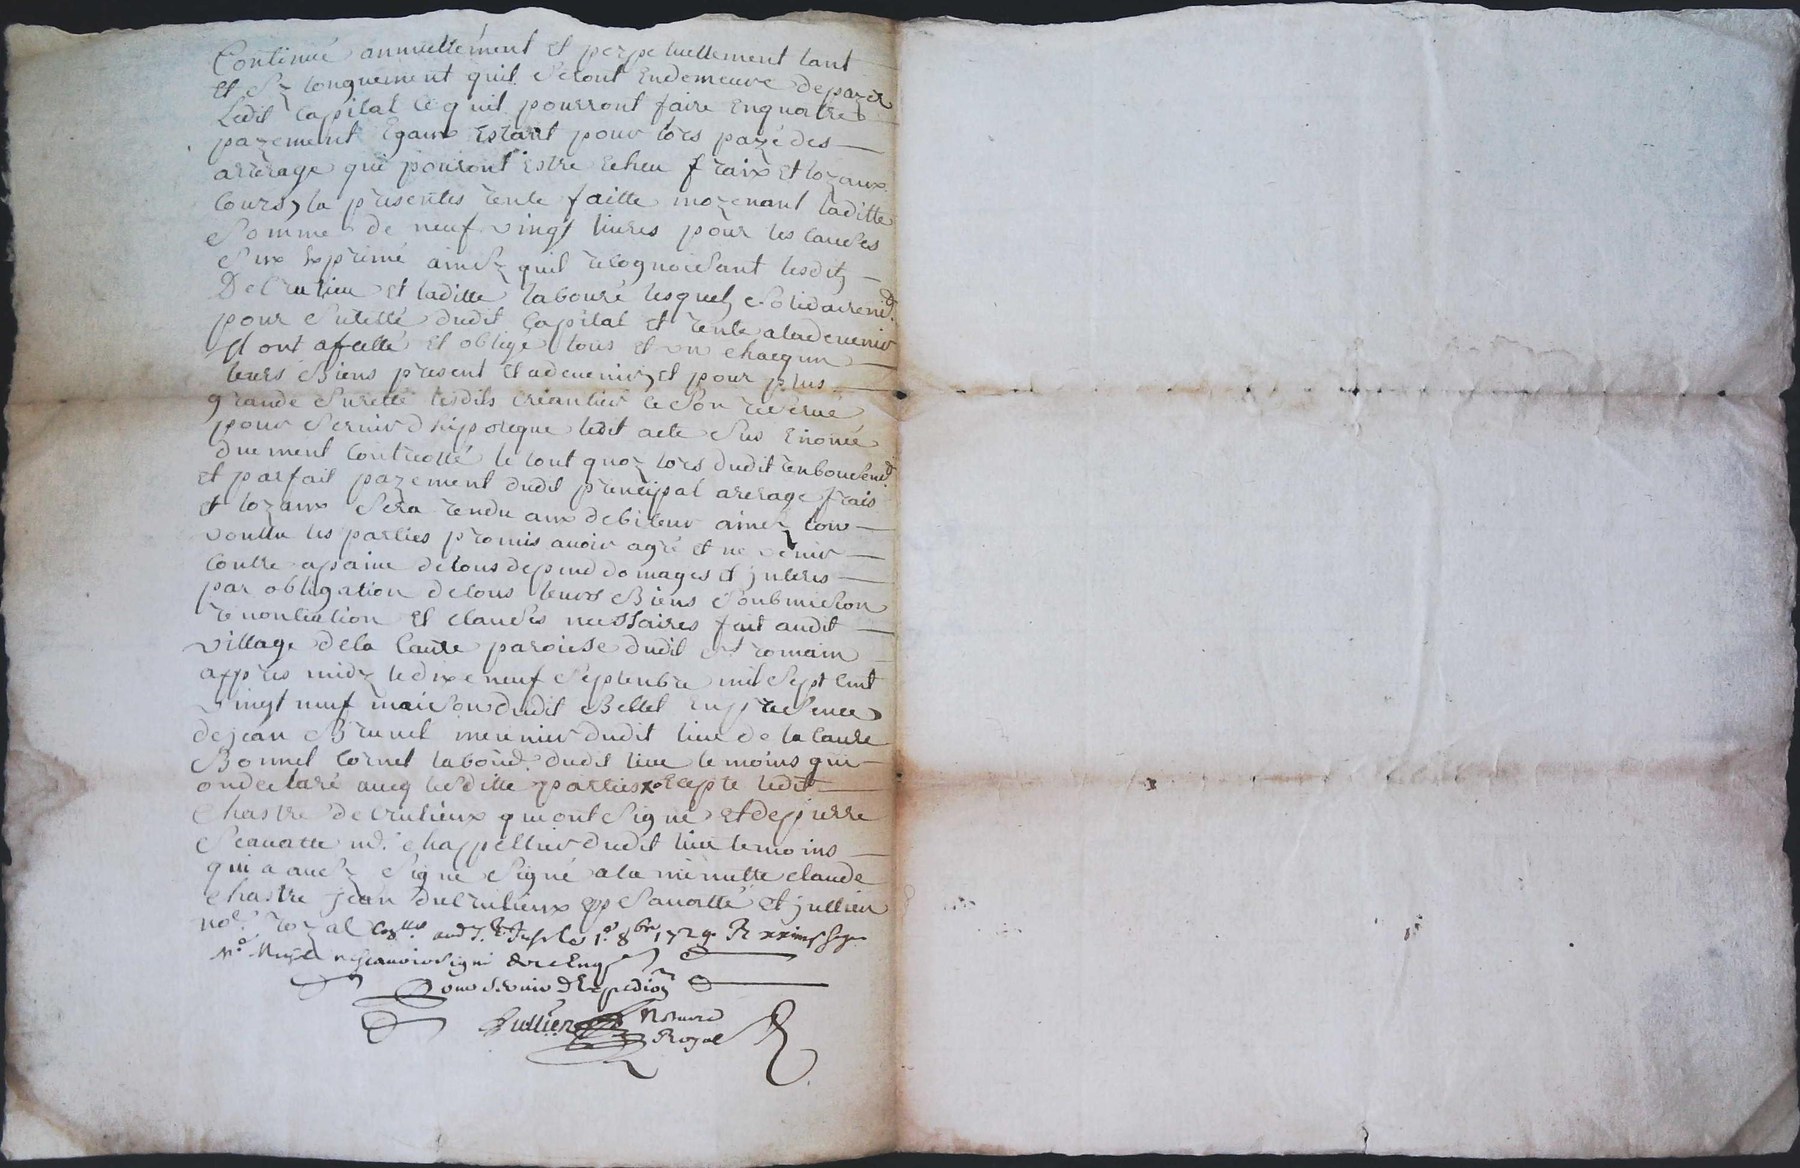 Continué annuellement et perpetuellement tant
et sy longuement quil seront endemeure depayer
Ledit Capital ce quil pourront faire enquatre
payement Egaux Estant pour lors payé des
arrerage qui pouront Estre echeu fraix et loyaux
Cours, la presentes rente faitte moyenant laditte
Somme de neuf vingt livres pour les causes
Sux Exprimé ainsy quil recognoisant lesditz
Delrulieu et laditte labouré lesquelz solidairemt
pour surette dudit Capital et rente aladevenir
Il ont afecté et obligé tous et un chacqun
leurs Biens present et advenir, et pour plus
grande surette lesdits creantier ce son reservé
pour servir dhipoteque ledit acte sus Enoncé
duement Controllé le tout quoy lors dudit renboursemt
et parfait payement dudit principal arerage frais
et loyaux Sera rendu aux debiteur ainsy con
voullu les parties promis avoir agré et ne venir
Contre apaine detous depend domages et jnteres
par obligation detous leurs Biens Soubmision
renontiation et clauses nessaires fait audit
village dela paroisse dudit St romain
appres midy ledixeneuf Septenbre mil Sept cent
vingt neuf maison dudit Bellet En presence
dejean Brunel meunier dudit lieu de la
Bonnet Cornet labourd. dudit lieu temoins qui
ondeclaré aveq lesditte parties Excepte ledit
Chastre delrulieux quiont signé et depierre
md. chappellier dudit lieu temoins
qui a aussy signe Signé ala minutte claude
chastre jean delrulieux et jullien
not. royal 1e 8bre 1729 R
signé
pour servir dExpedion
Jullien Notaire
Royal